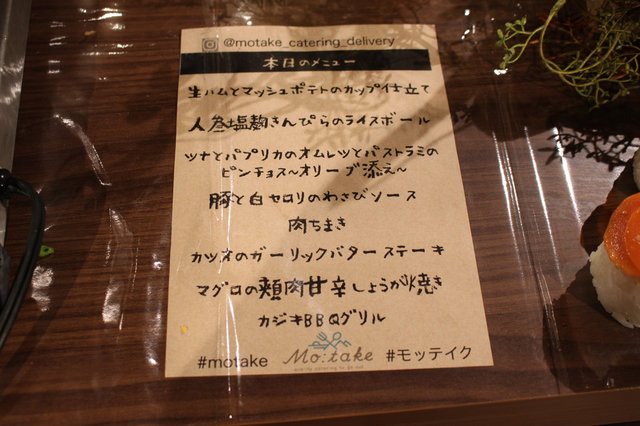 @motake_catering_delivery
本日のメニュー
生ハムとマッシュポテトのカップ仕立て
人参塩麹きんぴらのライスボール
ツナとパプリカのオムレツとパストラミの
ピンチョス～オリーブ添え～
豚と白セロリのわさびソース
肉ちまき
カツオのガーリックバターステーキ
マグロの頬肉甘辛しょうが焼き
カジキBBQグリル
#motake Mo:take #モッテイク